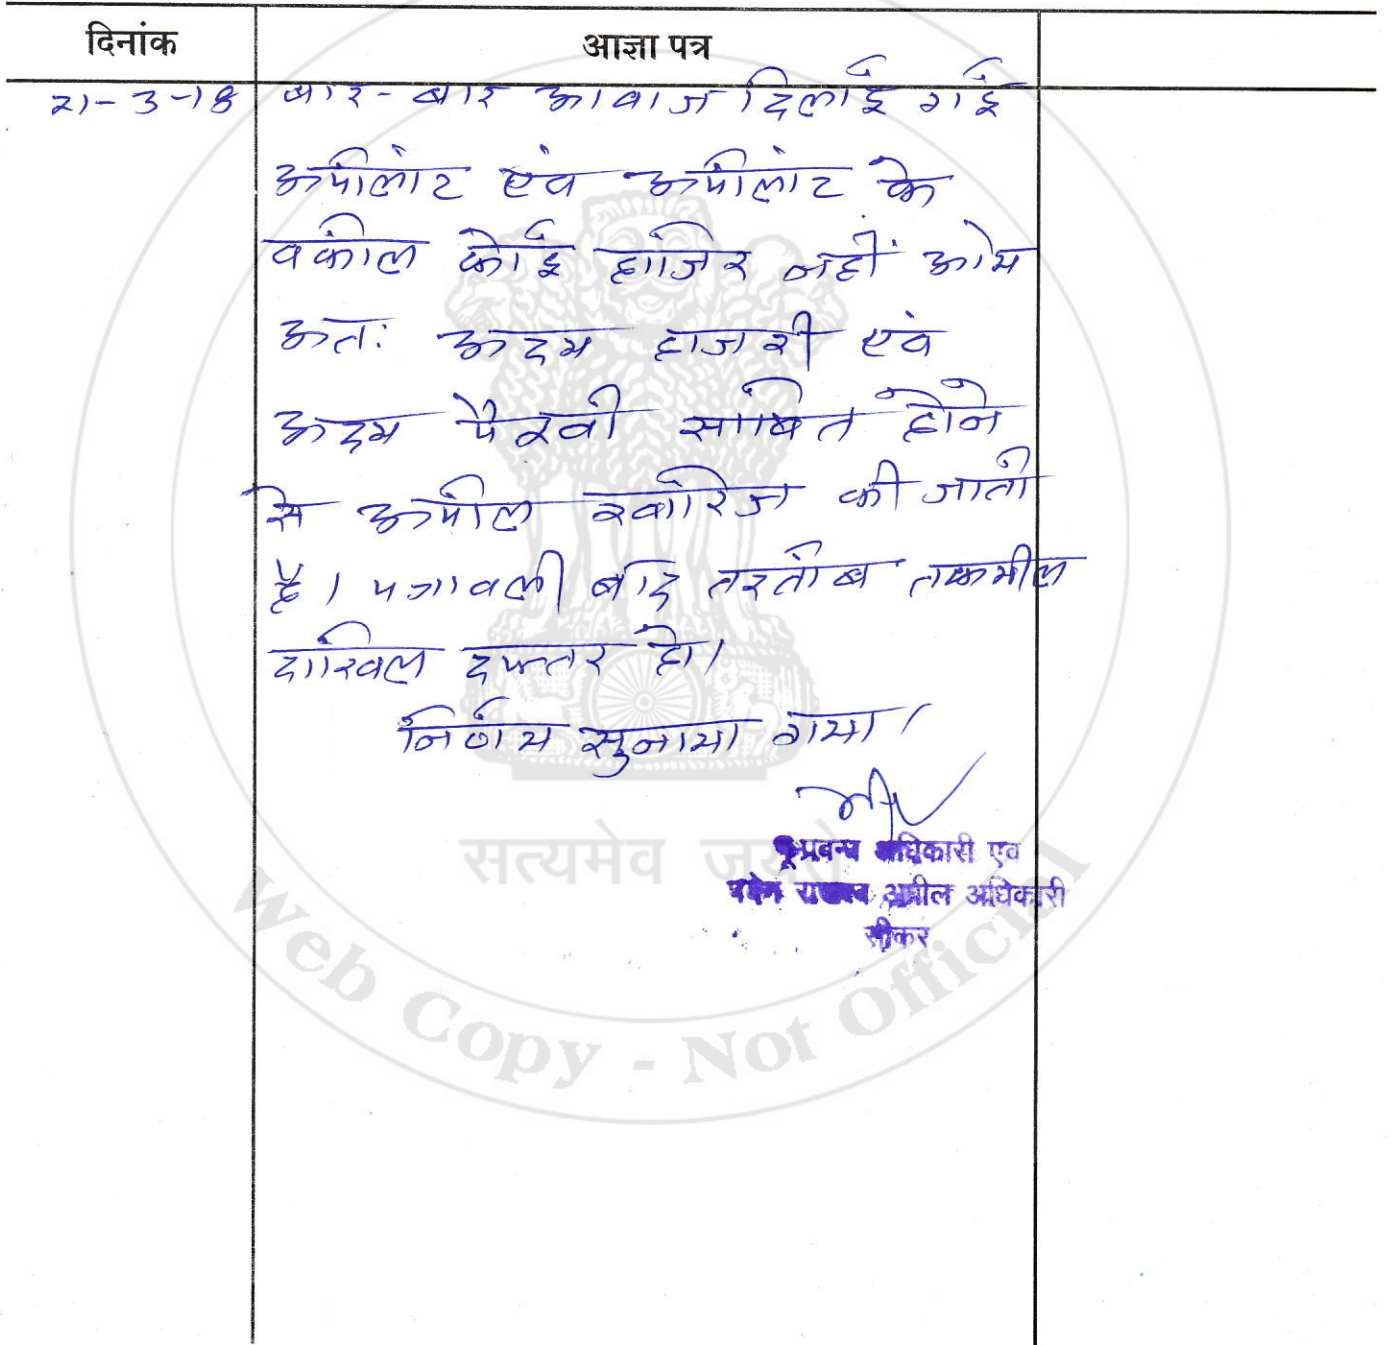 दिनांक आज्ञा पत्र
21-3-18 बार-बार आवाज दिलाई गई
अपीलांट एंव अपीलांट के
वकील कोई हाजिर नहीं आये
अतः अदम हाजरी एंव
अदम पैरवी साबित होने
से अपील खारिज की जाती
है। पत्रावली बाद तरतीब तकमील
दाखिल दफ्तर हो।
निर्णय सुनाया गया।
भूप्रबन्ध अधिकारी एव
पदेन राजस्व अपील अधिकारी
सीकर
सत्यमेव जयते
Web Copy - Not Official